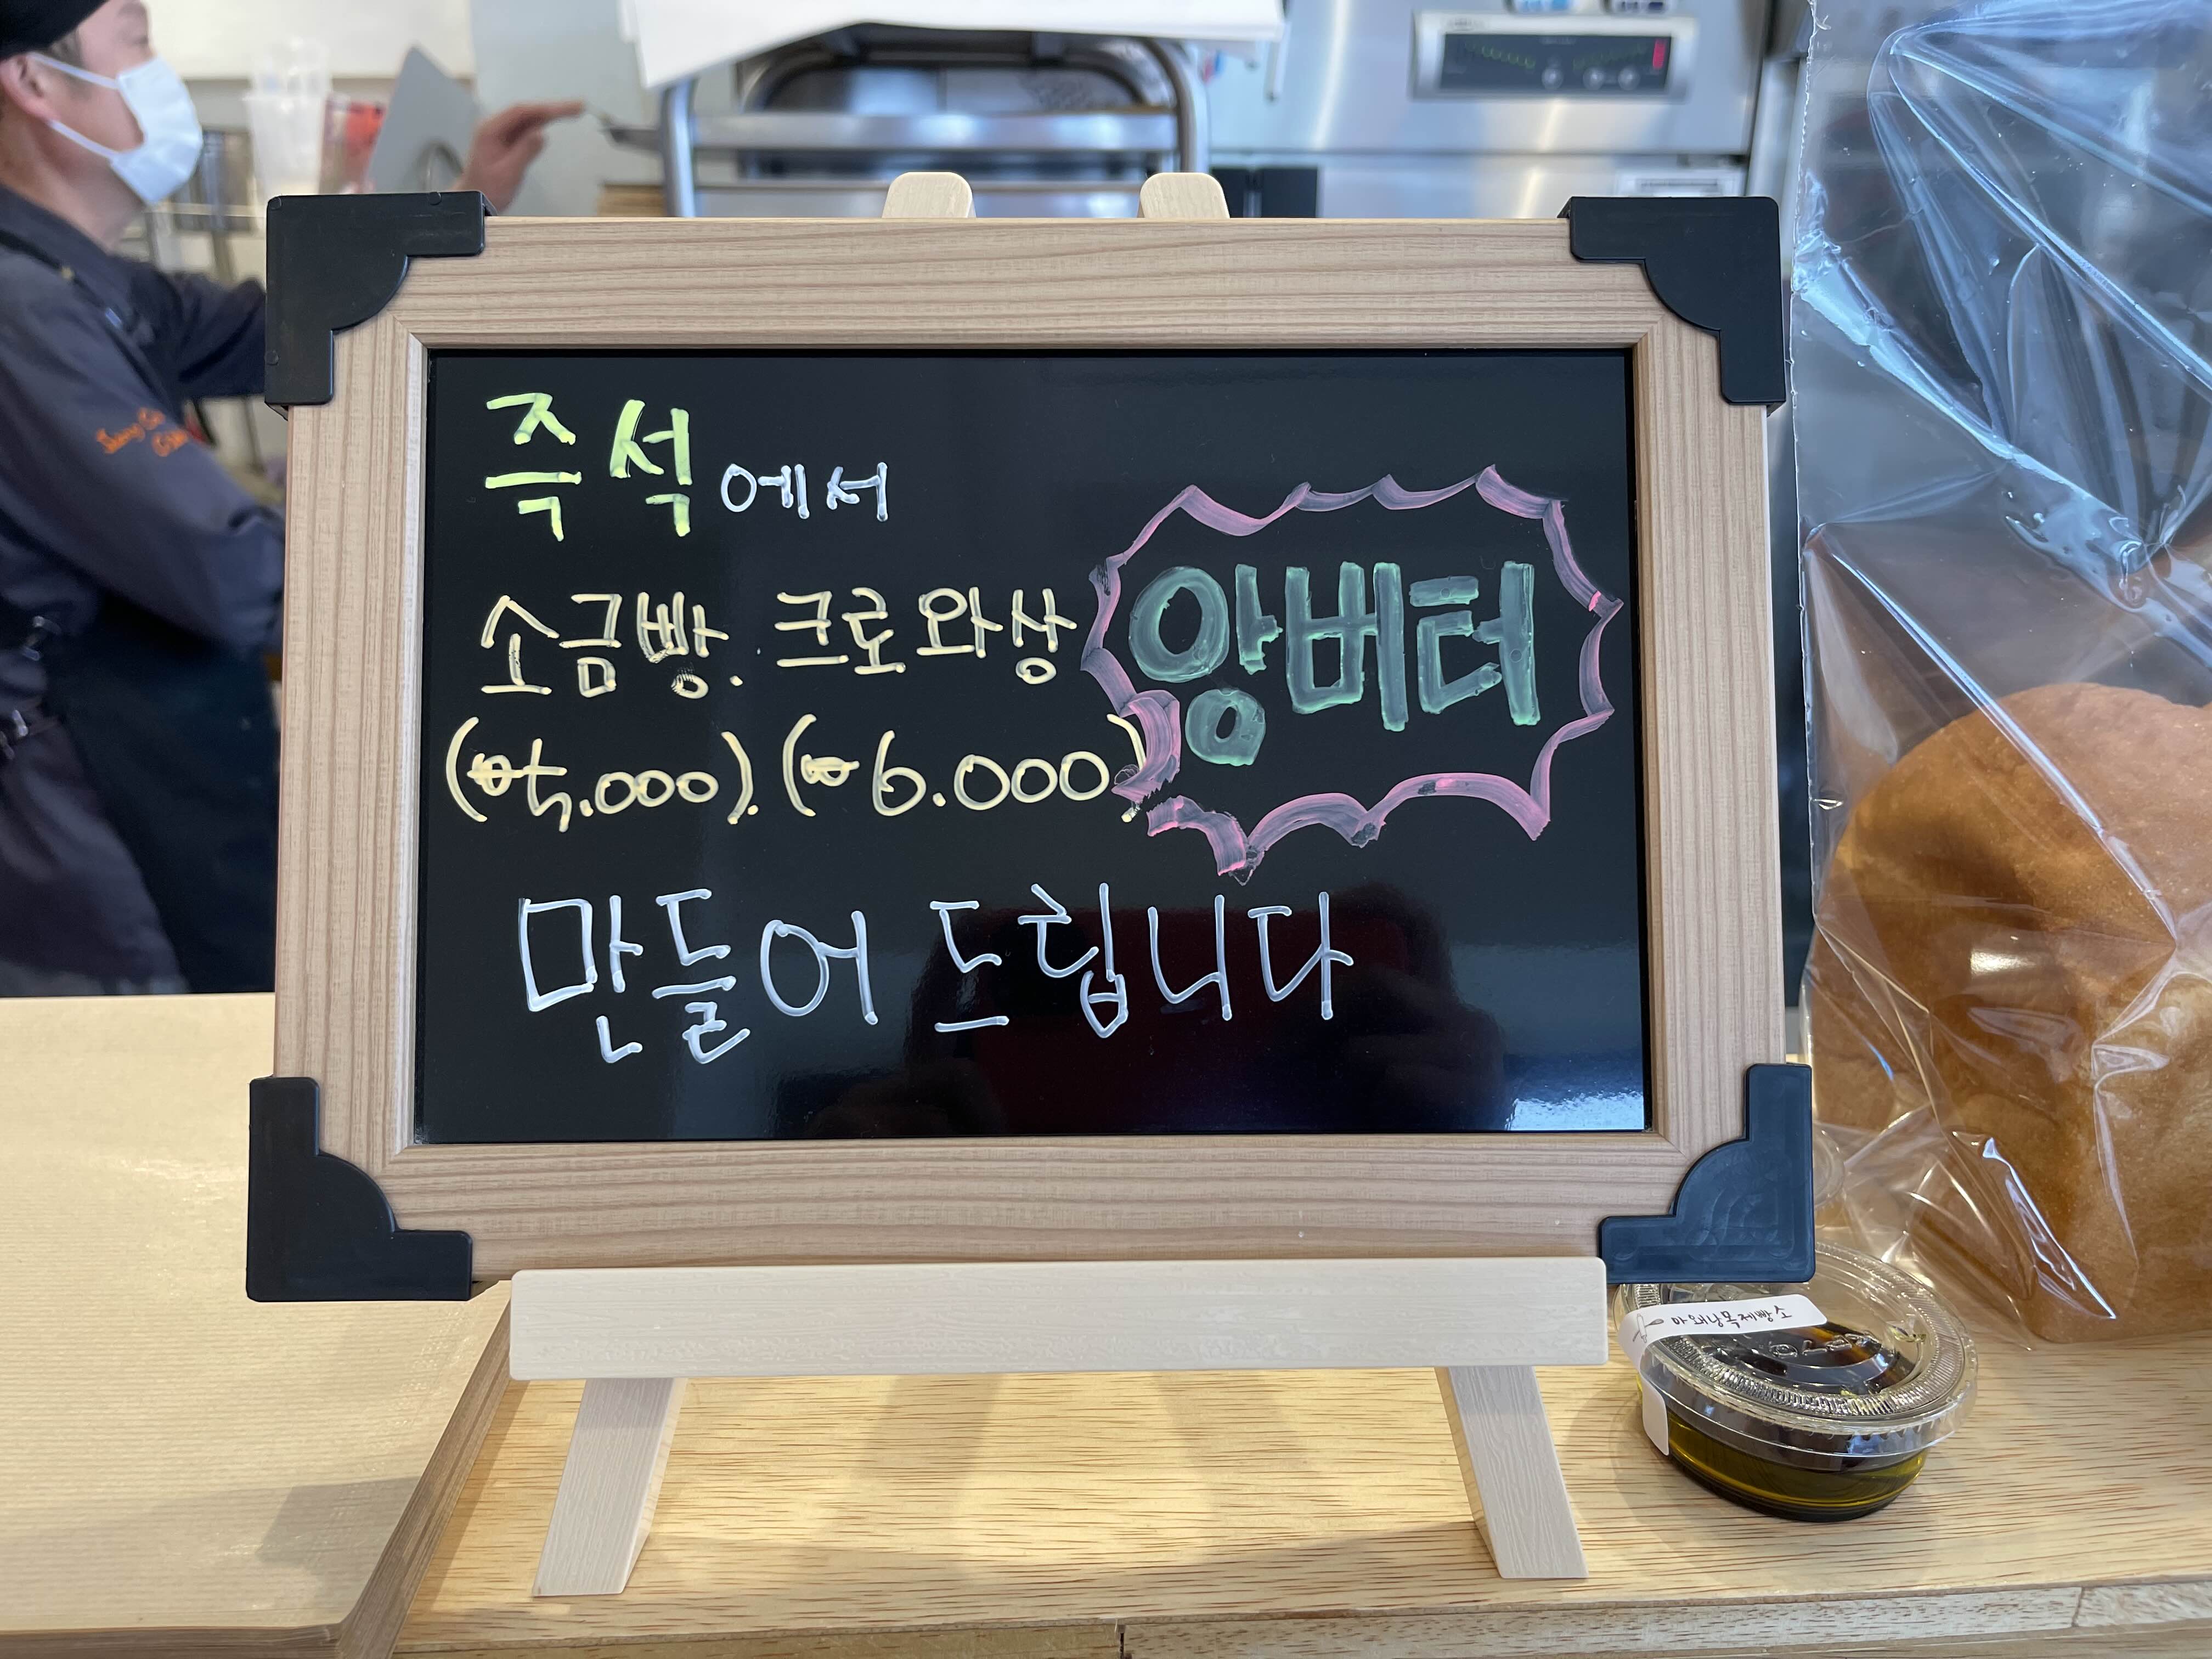 즉석에서
소금빵. 크로와상 앙버터
(₩5.000). (₩6.000)
만들어 드립니다